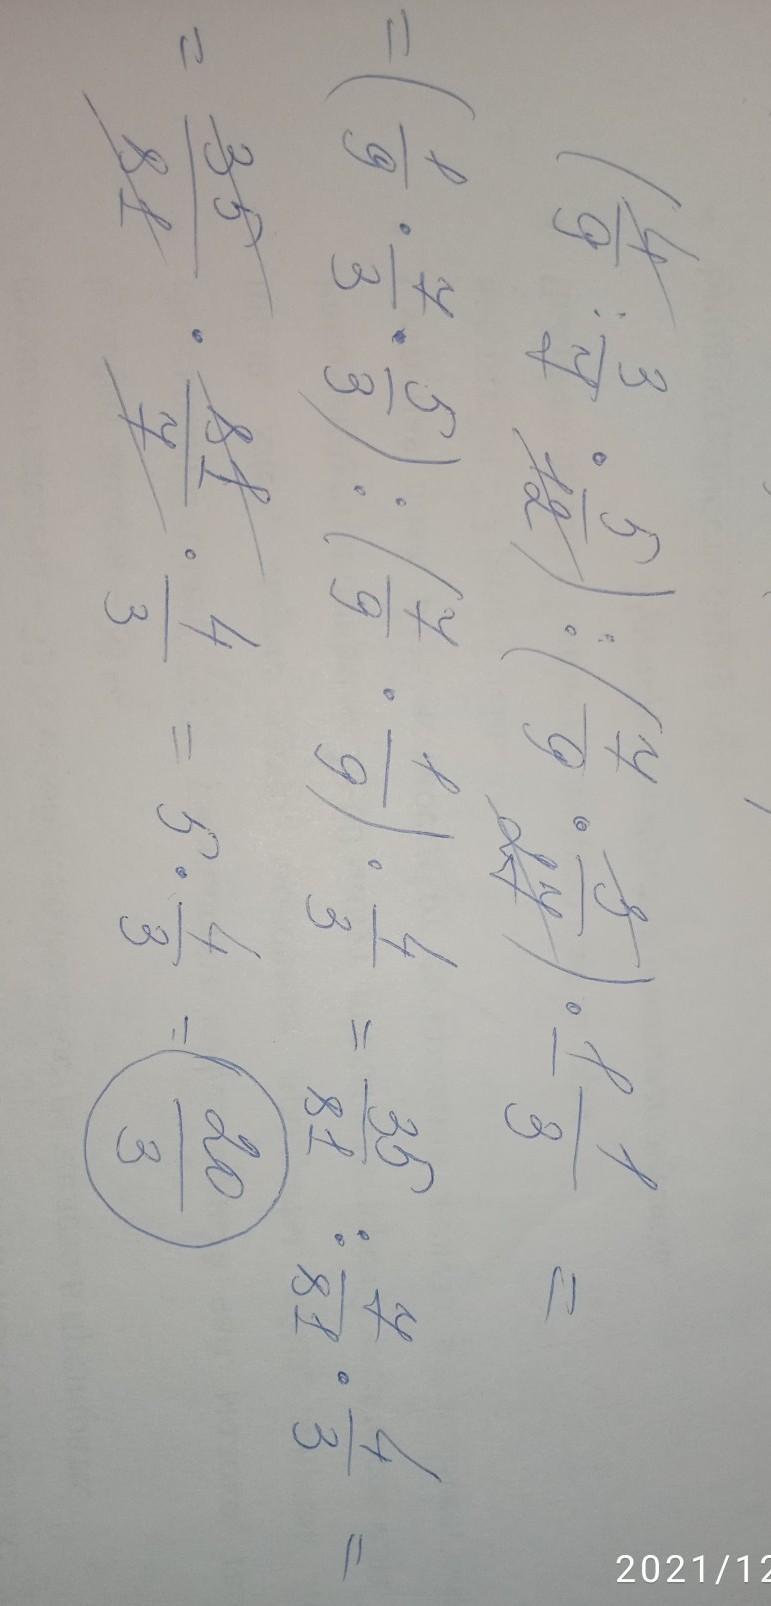 (4/9 : 3/7 · 5/12) : (7/9 · 3/27) · 1 1/3 =
= (1/9 · 7/3 · 5/3) : (7/9 · 1/9) · 4/3 = 35/81 : 7/81 · 4/3 =
= 35/81 · 81/7 · 4/3 = 5 · 4/3 = 20/3
2021/12